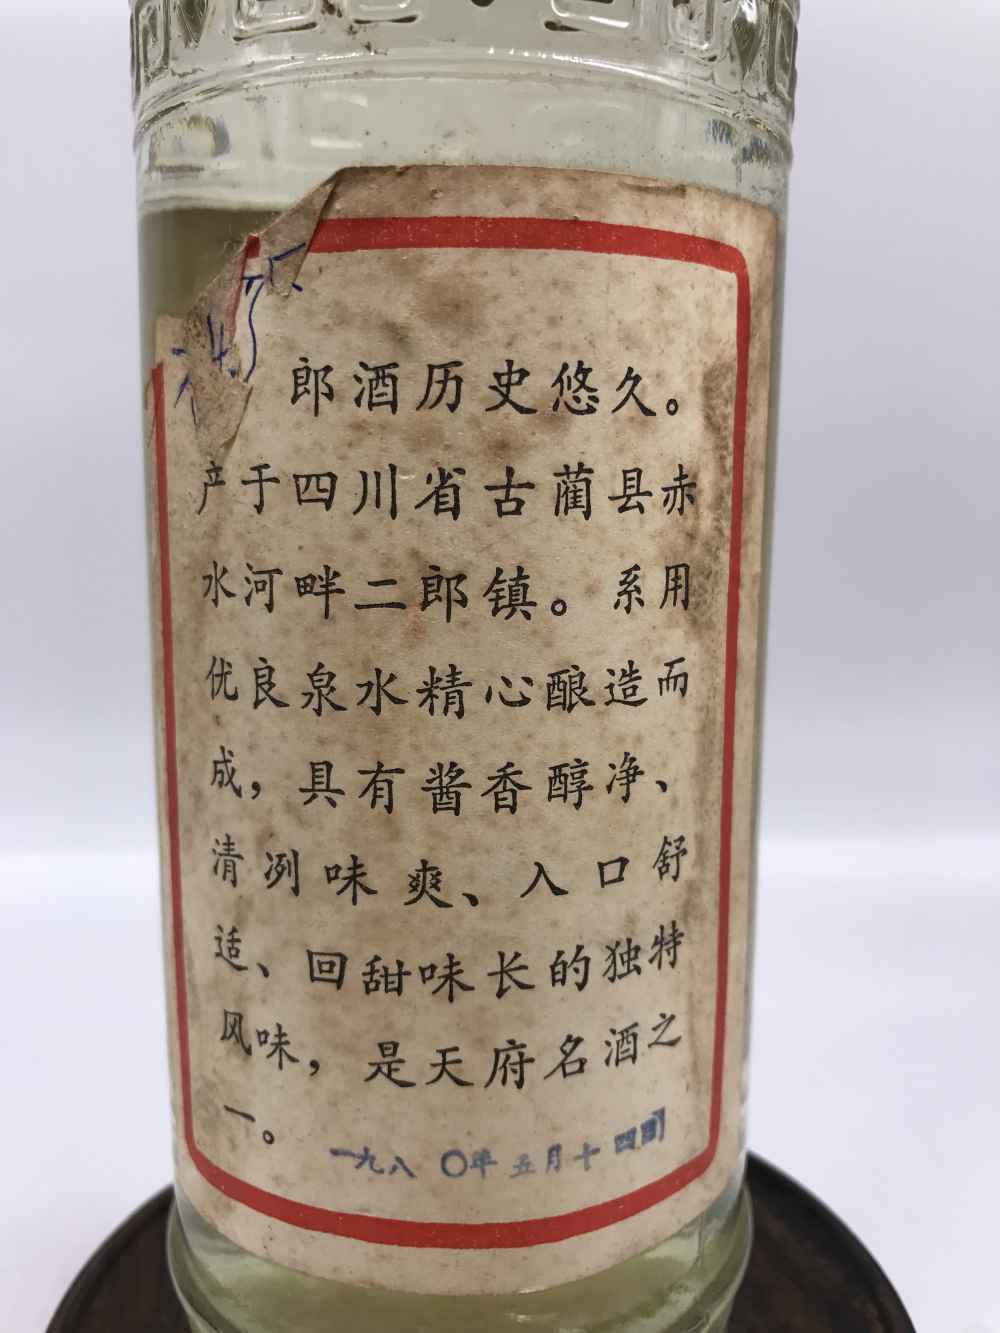 郎酒历史悠久。
产于四川省古蔺县赤
水河畔二郎镇。系用
优良泉水精心酿造而
成，具有酱香醇净、
清冽味爽、入口舒
适、回甜味长的独特
风味，是天府名酒之
一。
一九八〇年五月十四